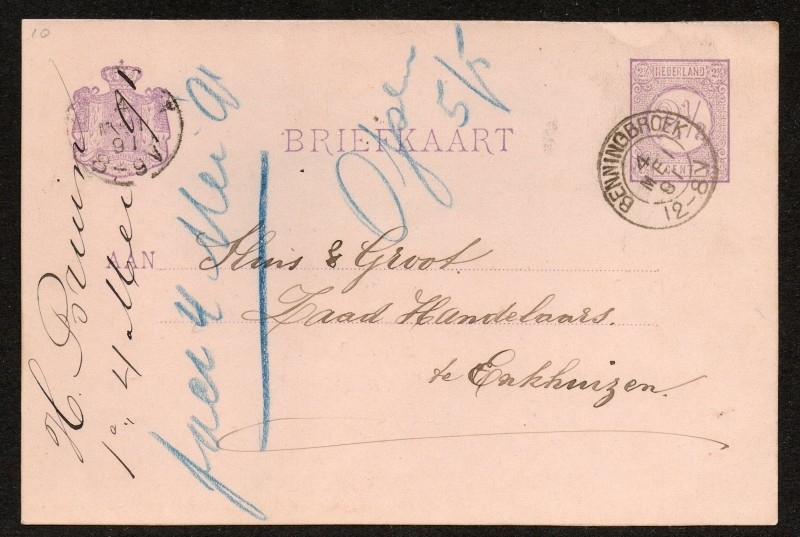 10
2½ NEDERLAND 2½
BRIEFKAART
BENNINGBROEK
4
ME
91
12-8V
AAN Sluis & Groot
Zaad Handelaars.
te Enkhuizen.
H. Bruin
1º, 4 Mei 91
4 Mei 91
5/5